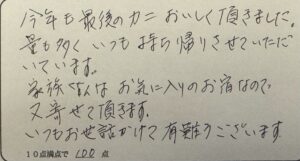 今年も最後のカニおいしく頂きました。
量も多くいつも持ち帰りさせていただ
いています。
家族さんはお気に入りのお宿なので
又寄せて頂きます。
いつもお世話かけて有難うございます
10点満点で 100 点